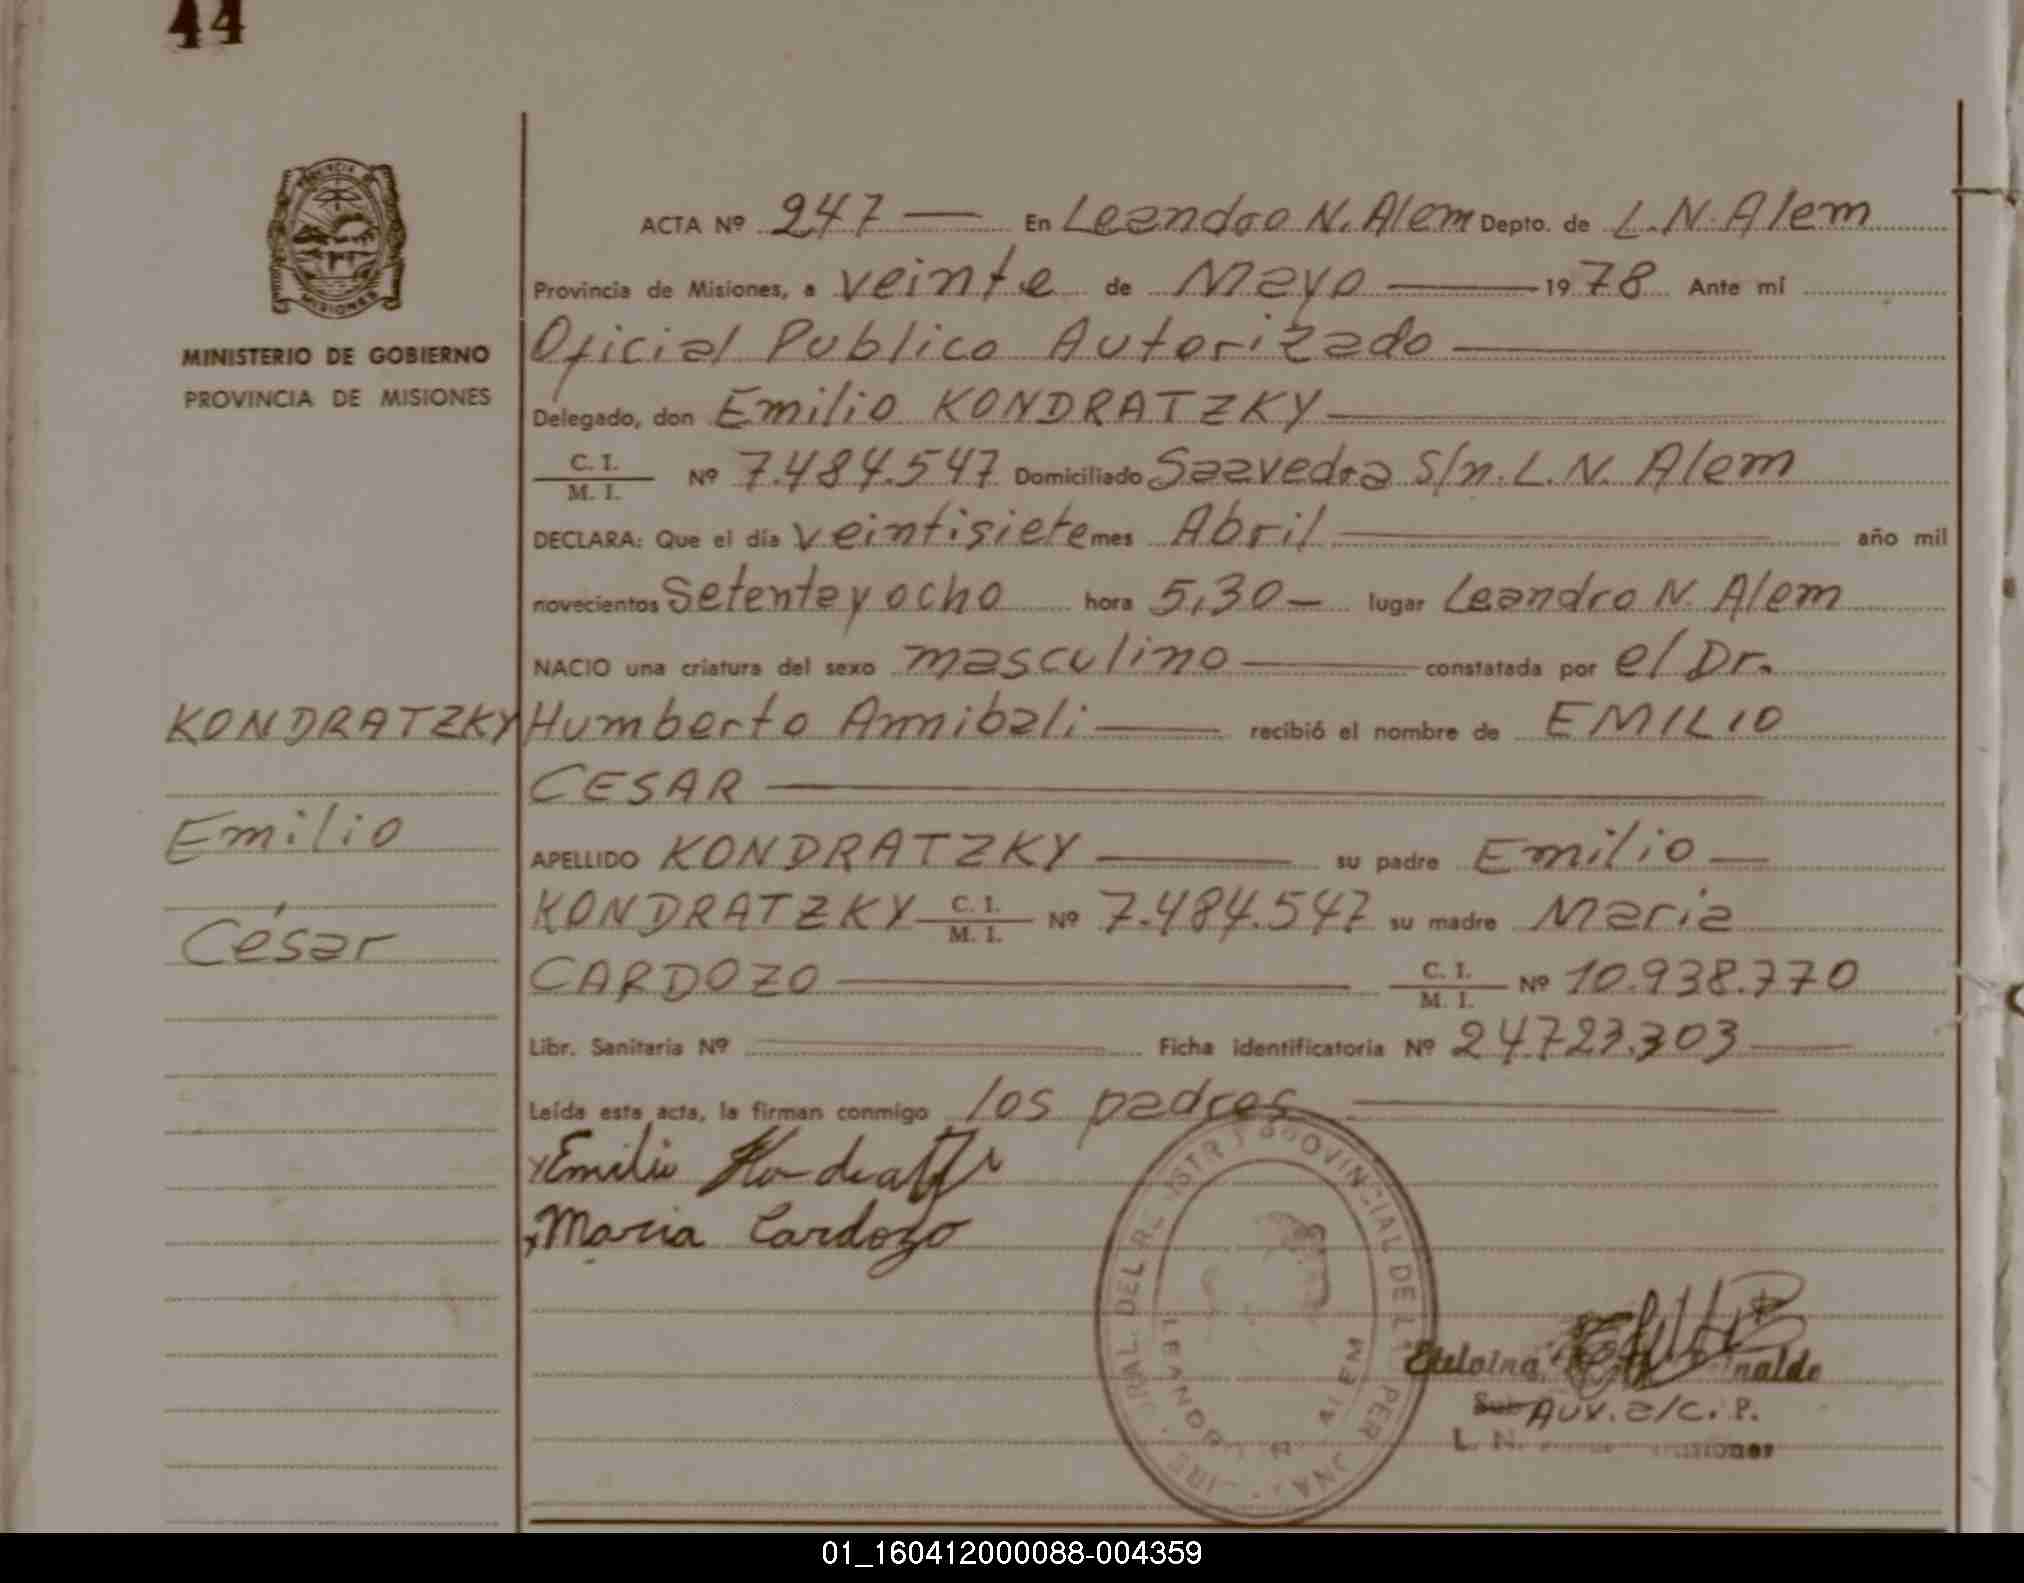 44
MINISTERIO DE GOBIERNO
PROVINCIA DE MISIONES
KONDRATZKY
Emilio
César
ACTA Nº 247 — En Leandro N. Alem Depto. de L.N. Alem
Provincia de Misiones, a veinte de Mayo — 1978 Ante mí
Oficial Publico Autorizado —
Delegado, don Emilio KONDRATZKY —
C. I. / M. I. Nº 7.484.547 Domiciliado Saavedra S/n. L.N. Alem
DECLARA: Que el día veintisiete mes Abril — año mil
novecientos Setenta y ocho hora 5,30 — lugar Leandro N. Alem
NACIO una criatura del sexo masculino — constatada por el Dr.
Humberto Annibali — recibió el nombre de EMILIO
CESAR —
APELLIDO KONDRATZKY — su padre Emilio —
KONDRATZKY C. I. / M. I. Nº 7.484.547 su madre Maria
CARDOZO — C. I. / M. I. Nº 10.938.770
Libr. Sanitaria Nº — Ficha identificatoria Nº 24.723.303 —
Leída esta acta, la firman conmigo los padres —
Emilio
Maria Cardozo
PROVINCIAL DE
LEANDRO N. ALEM
Aux. a/c. P.
L. N.
01_160412000088-004359